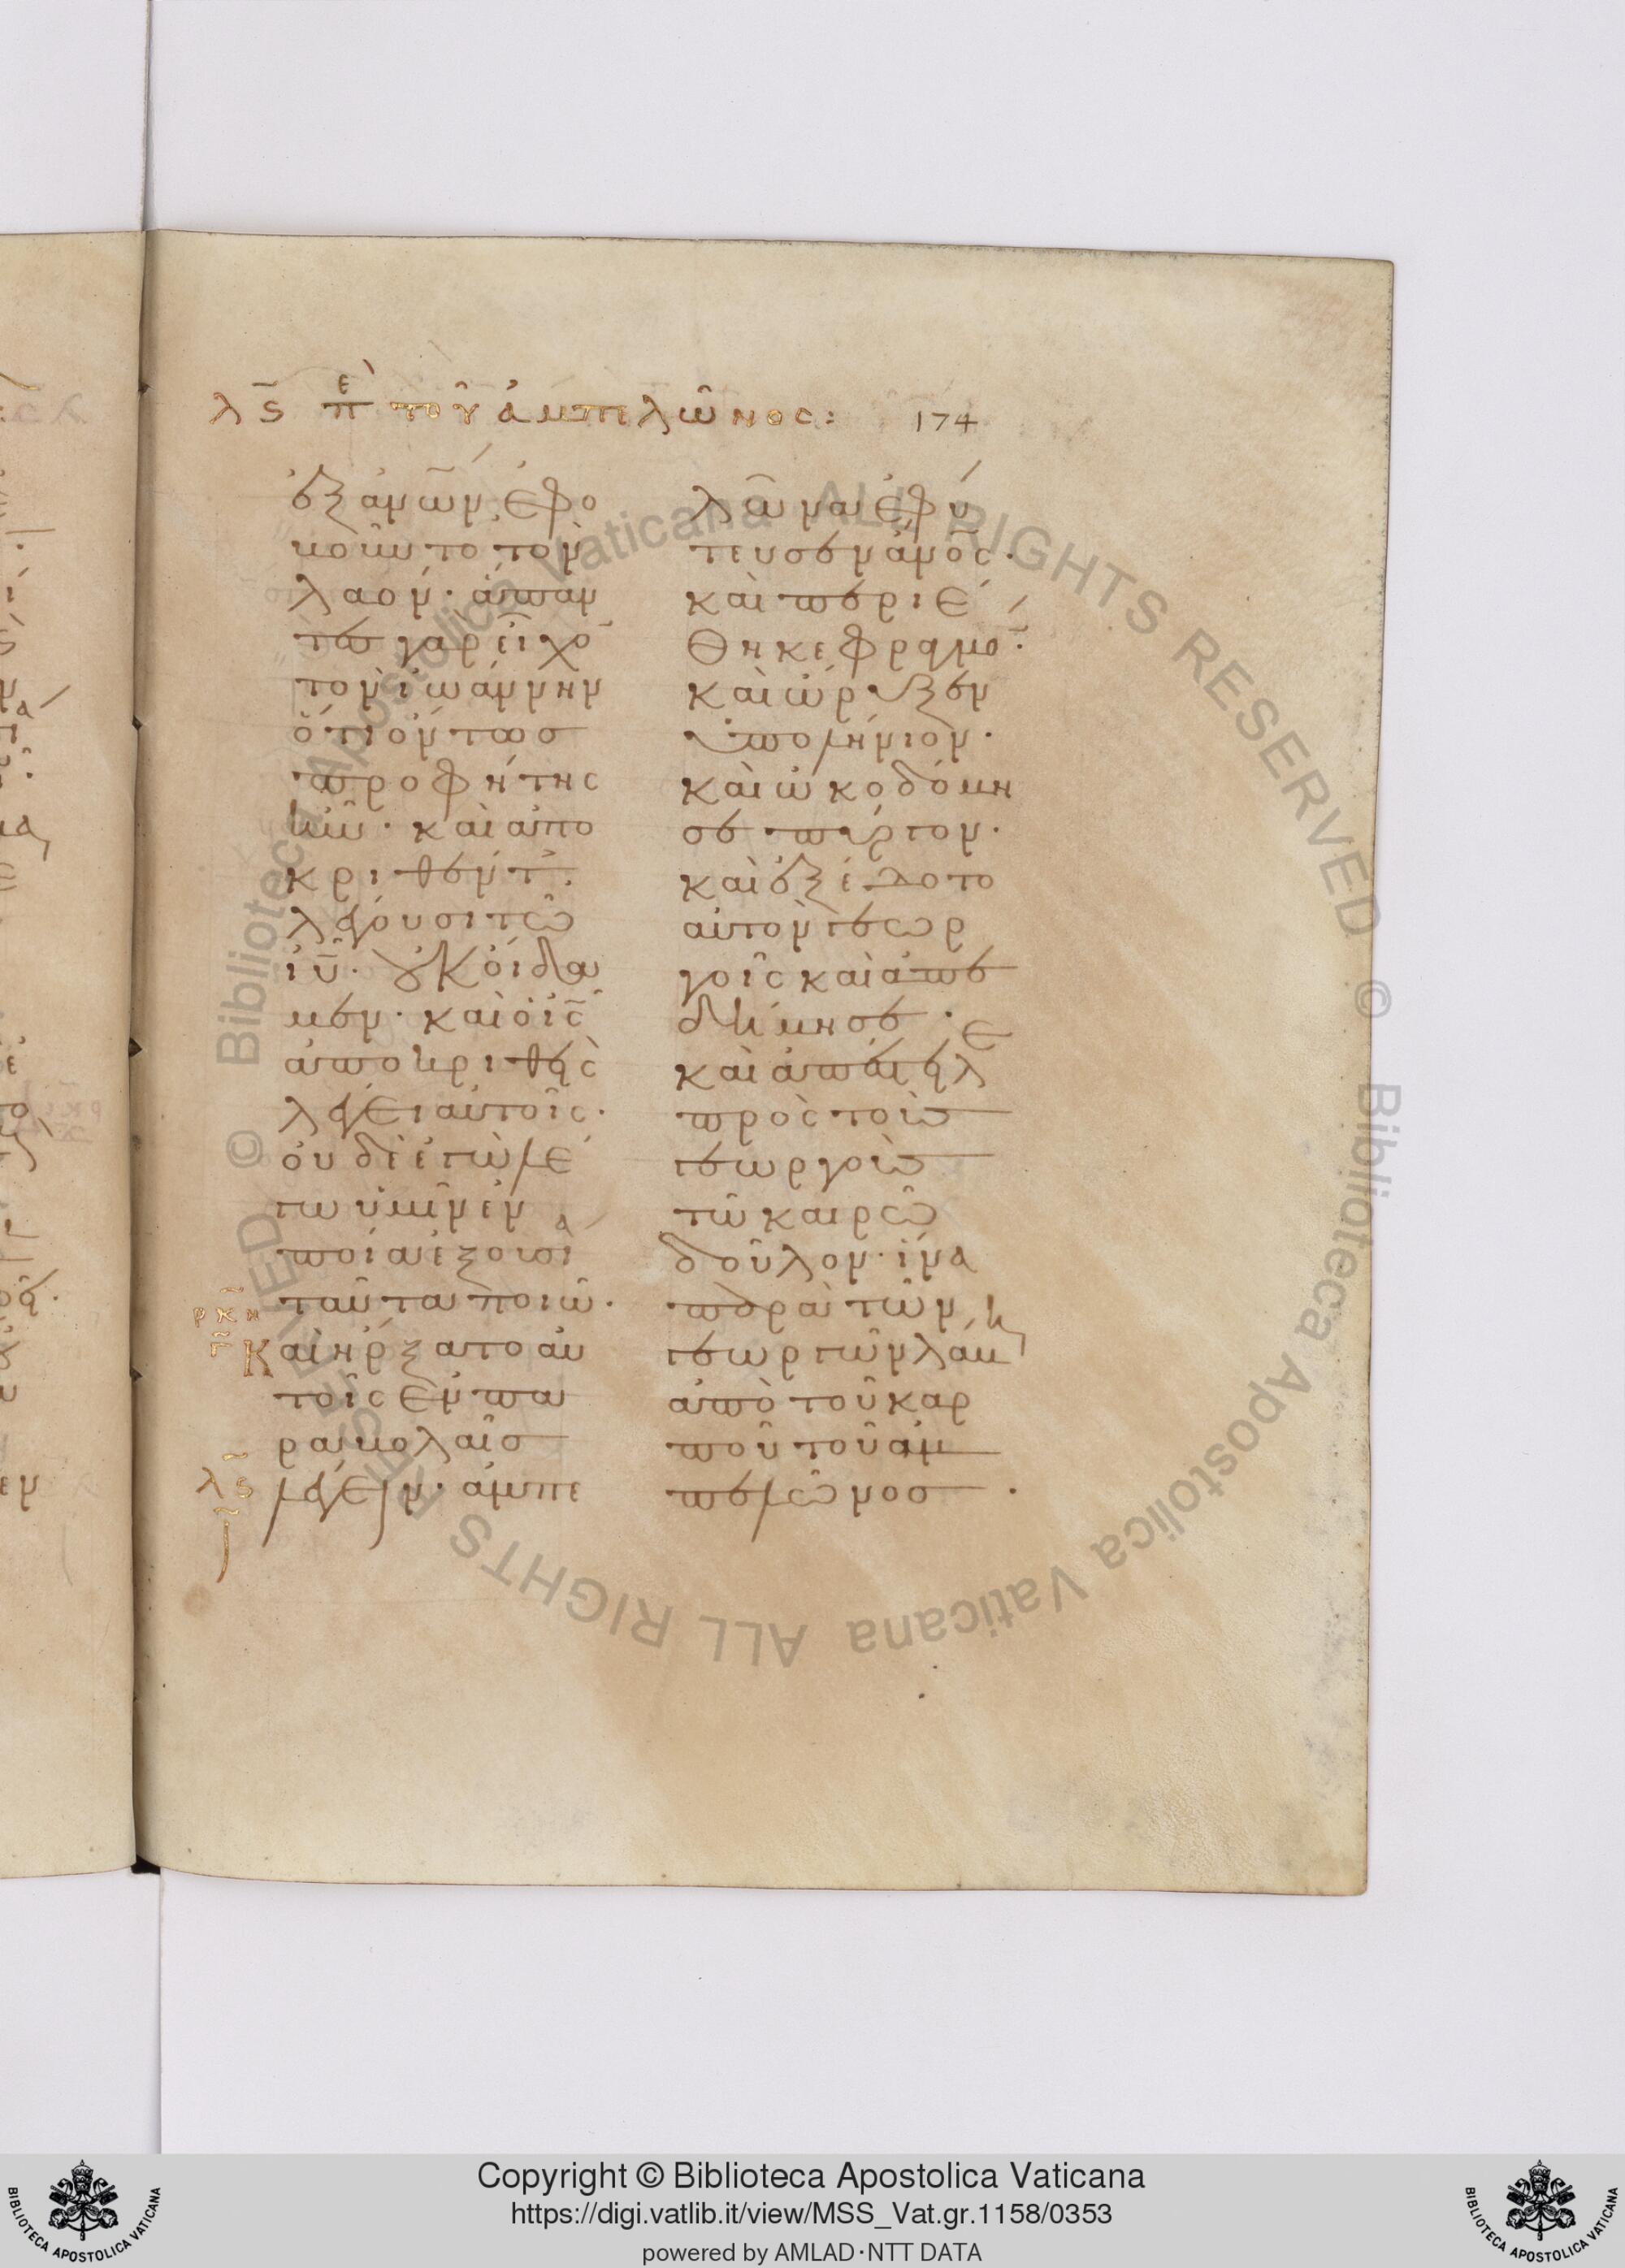 λϛ πε τοῦ ἀμπελῶνος: 174
ἐξ ἀνων· ἐφο
βοῦντο τὸν
λαόν· ἅπαν
τες γὰρ εἶχο
τὸν ἰωάννην
ὅτι ὄντως
προφήτης
ἦν· καὶ ἀπο
κριθέντ
λέγουσι τῶ
ιυ· οὐκ οἴδα
μεν· καὶ ὁ ις
ἀποκριθεὶς
λέγει αὐτοῖς·
οὐδὲ ἐγὼ λέ
γω ὑμῖν ἐν
ποία ἐξουσία
ταῦτα ποιῶ·
ρκη
γ Καὶ ἤρξατο αὐ
τοῖς ἐν πα
ραβολαῖς
λϛ λέγειν· ἀμπε
λῶνα ἐφύ
τευσεν ανος·
καὶ περιέ
θηκε φραγμό·
καὶ ὤρυξεν
ὑπολήνιον·
καὶ ὠκοδόμη
σε πύργον·
καὶ ἐξέδοτο
αὐτὸν γεωρ
γοῖς καὶ ἀπε
δήμησε·
καὶ ἀπέστειλε
πρὸς τοὺς
γεωργοὺς
τῶ καιρῶ
δοῦλον· ἵνα
παρὰ τῶν
γεωργῶν λάβη
ἀπὸ τοῦ καρ
ποῦ τοῦ ἀμ
πελῶνος·
Copyright © Biblioteca Apostolica Vaticana
https://digi.vatlib.it/view/MSS_Vat.gr.1158/0353
powered by AMLAD·NTT DATA
BIBLIOTECA APOSTOLICA VATICANA
BIBLIOTECA APOSTOLICA VATICANA
© Biblioteca Apostolica Vaticana ALL RIGHTS RESERVED
© Biblioteca Apostolica Vaticana ALL RIGHTS RESERVED